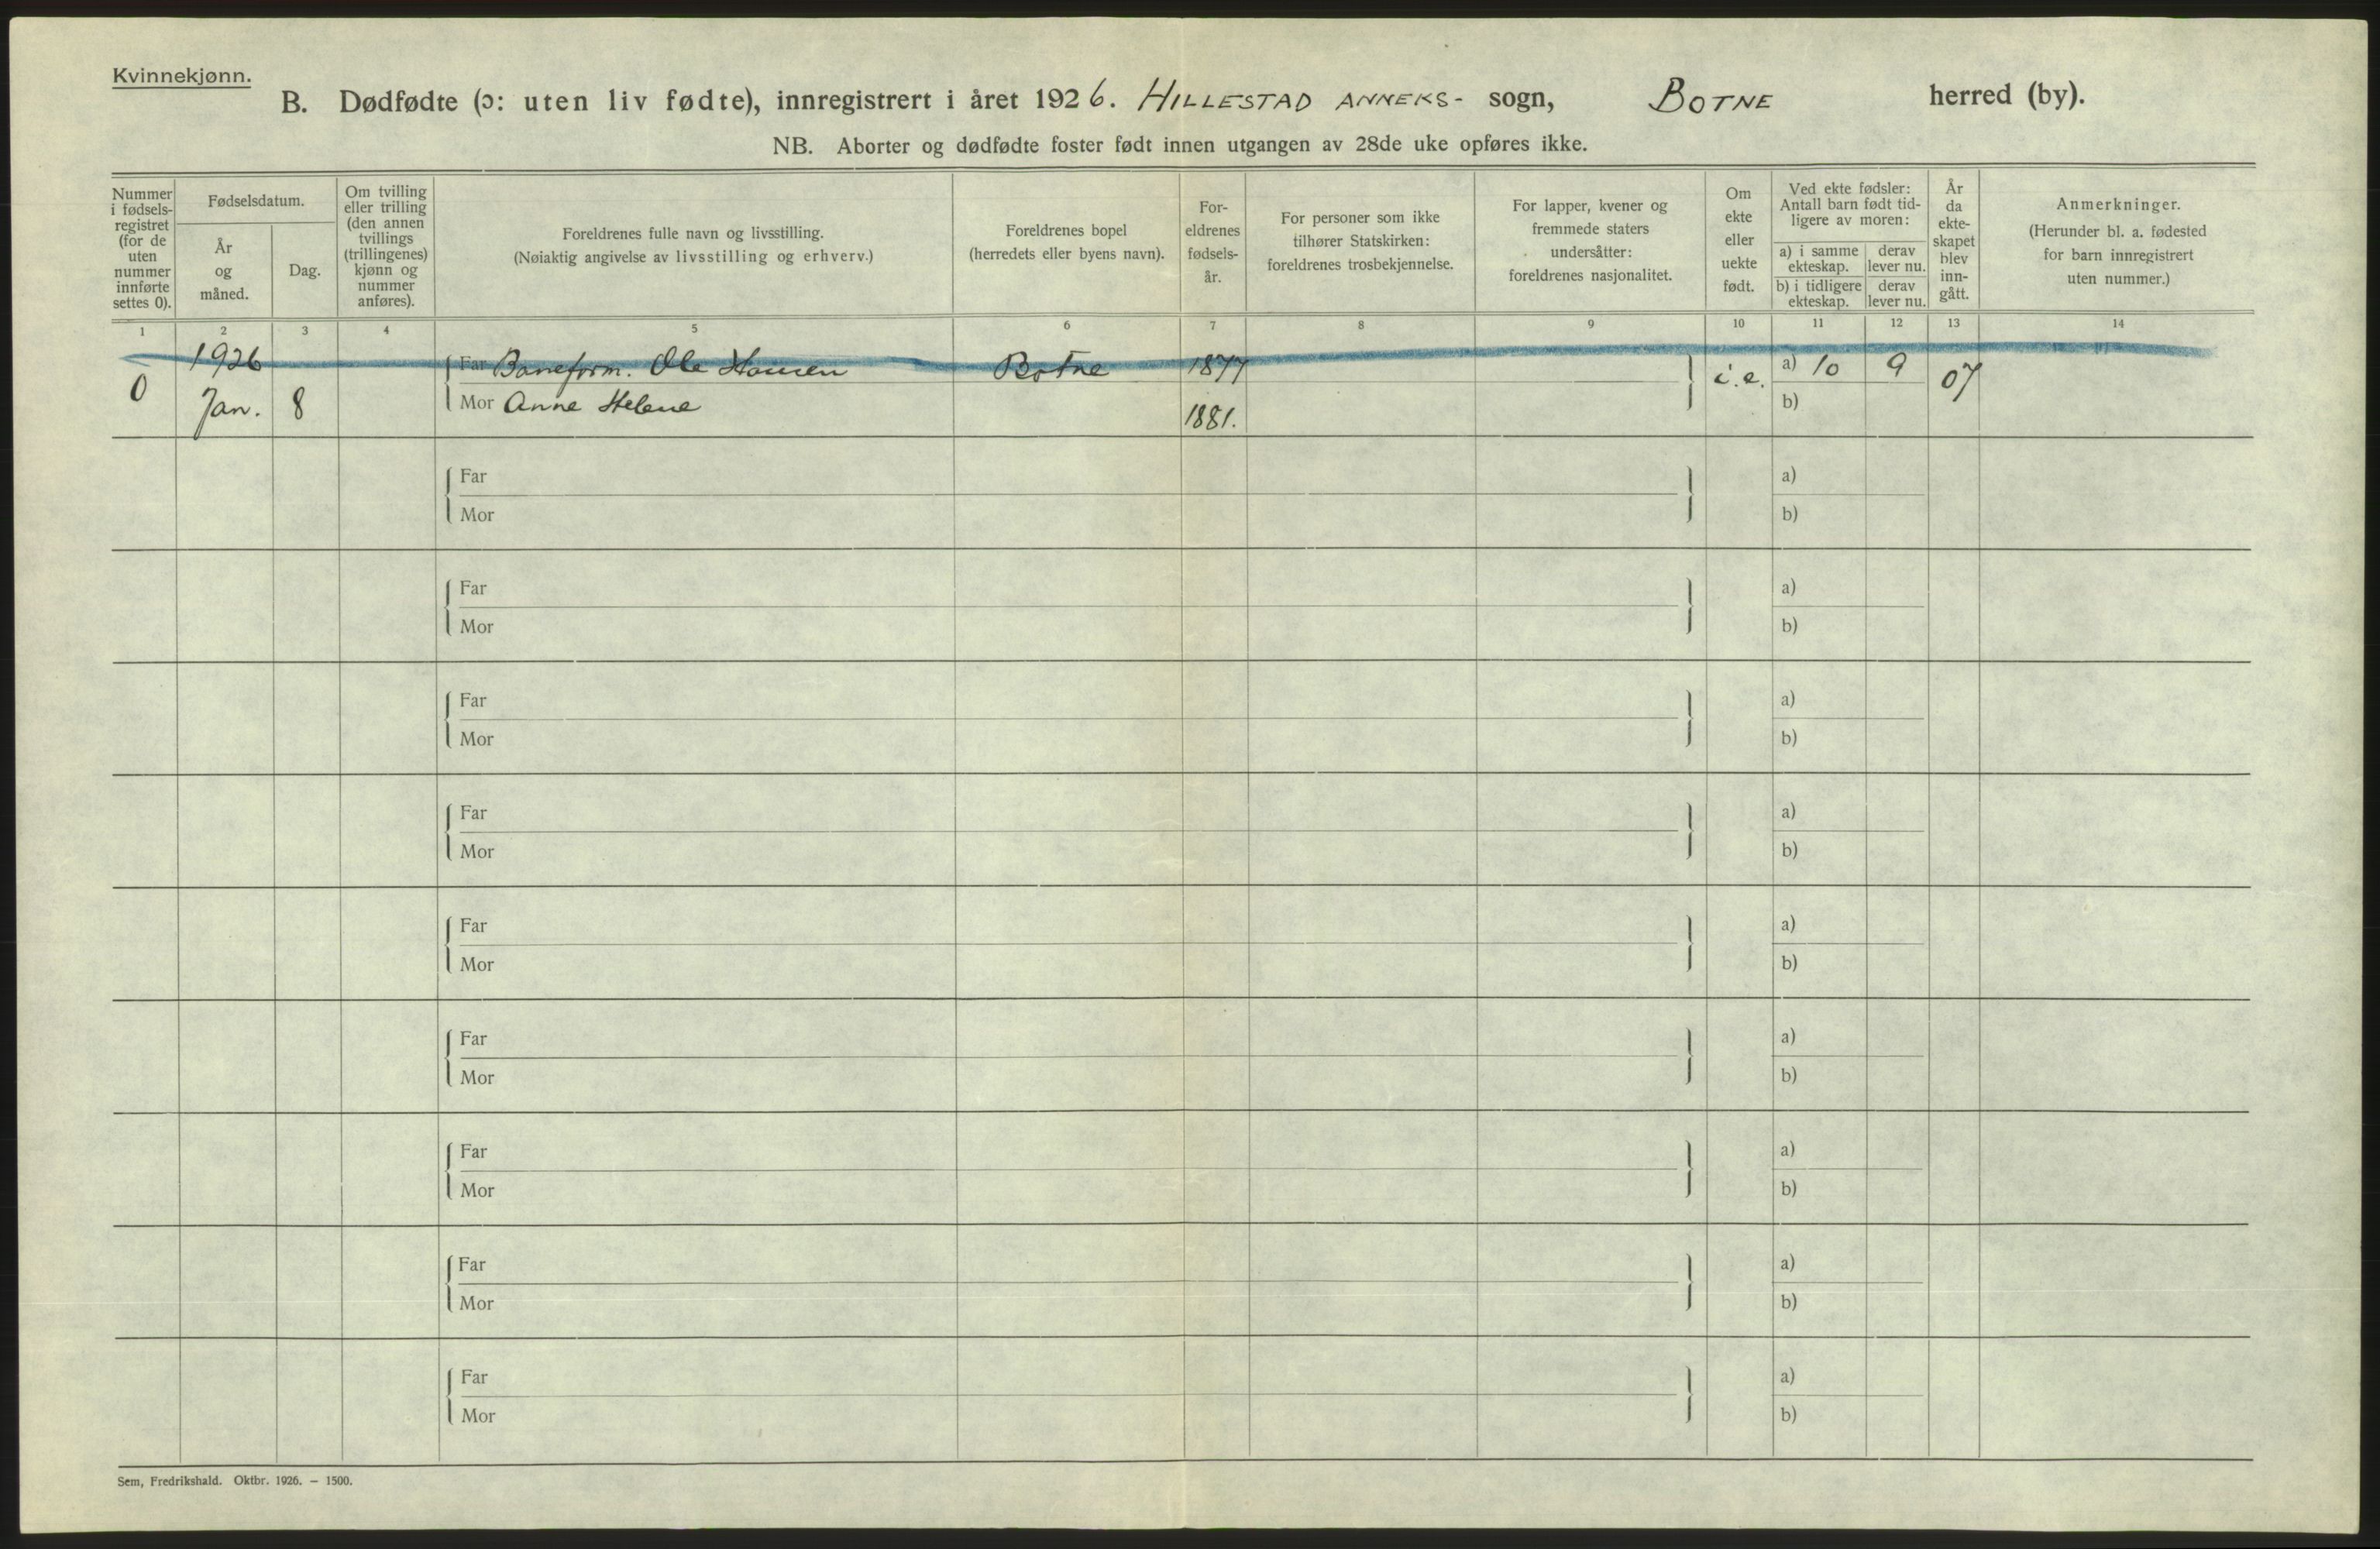 Kvinnekjønn.
B. Dødfødte (ɔ: uten liv fødte), innregistrert i året 1926. HILLESTAD ANNEKS- sogn, BOTNE herred (by).
NB. Aborter og dødfødte foster født innen utgangen av 28de uke opføres ikke.
Nummer
i fødsels-
registret
(for de
uten
nummer
innførte
settes 0).
Fødselsdatum.
År
og
måned.
Dag.
Om tvilling
eller trilling
(den annen
tvillings
(trillingenes)
kjønn og
nummer
anføres).
Foreldrenes fulle navn og livsstilling.
(Nøiaktig angivelse av livsstilling og erhverv.)
Foreldrenes bopel
(herredets eller byens navn).
For-
eldrenes
fødsels-
år.
For personer som ikke
tilhører Statskirken:
foreldrenes trosbekjennelse.
For lapper, kvener og
fremmede staters
undersåtter:
foreldrenes nasjonalitet.
Om
ekte
eller
uekte
født.
Ved ekte fødsler:
Antall barn født tid-
ligere av moren:
a) i samme
ekteskap.
derav
lever nu.
b) i tidligere
ekteskap.
derav
lever nu.
År
da
ekte-
skapet
blev
inn-
gått.
Anmerkninger.
(Herunder bl. a. fødested
for barn innregistrert
uten nummer.)
1 2 3 4 5 6 7 8 9 10 11 12 13 14
1926 Far Baneform. Ole Hansen Botne 1877 i.e. a) 10 9 07
0 Jan. 8 Mor Anne Helene 1881. b)
Far a)
Mor b)
Far a)
Mor b)
Far a)
Mor b)
Far a)
Mor b)
Far a)
Mor b)
Far a)
Mor b)
Far a)
Mor b)
Far a)
Mor b)
Far a)
Mor b)
Sem, Fredrikshald. Oktbr. 1926. – 1500.